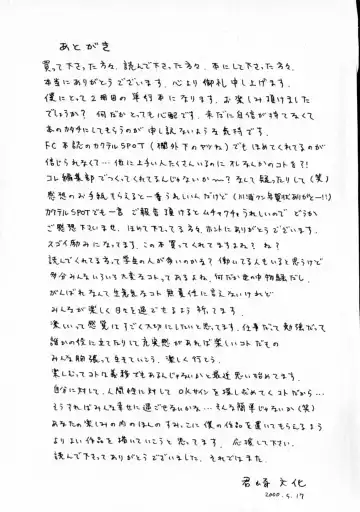 あとがき
買って下さった方々、読んで下さった方々、本にして下さった方々、
本当にありがとうございます。心より御礼申し上げます。
僕にとって2冊目の単行本になります。お楽しみ頂けました
でしょうか? 何だかとっても心配です。未だに自信が持てなくて
本のカタチにしてもらうのが申し訳ないような気持です。
FC本誌のカクテルSPOT(欄外下のヤツね)でもほめてくれてるのが
信じられなくて…他に上手い人たくさんいるのにオレなんかのコトを?!
コレ編集部でつくってくれてるんじゃないか〜?なんて疑ったりして(笑)
感想のお手紙もらえると一番うれしいんだけど
カクテルSPOTでも一言ご報告頂けるとムチャクチャうれしいので どうか
ご感想下さいませ。ほめて下さってる方々ホントにありがとうございます。
スゴイ励みになってます。この本買ってくれてますよね? ね?
読んでくれてる方って学生の人が多いのかな? 働いてる人もいると思うけど
多分みんないろいろ大変なコトってあるよね。何だか世の中物騒だし。
がんばれなんて生意気なコト無責任に言えないけれど
みんなが楽しく日々を過ごせるよう祈ってます。
楽しいって感覚はすごく大切にしたいと思ってます。仕事だって勉強だって
誰かの役に立てたりして充実感があれば楽しいコトだもの
みんな胸張って生きていこう。楽しく行こう。
楽しむってコトは義務でもあるんじゃないかと最近思い始めてます。
自分に対して、人間性に対してOKサインを探し求めてくコトだから…
そうすればみんな幸せに過ごせないかな…そんな簡単じゃないか(笑)
あなたの楽しみの内のほんのすみっこに僕の作品を置いてもらえるよう
よりよい作品を描いていこうと思ってます。応援して下さい。
読んで下さってありがとうございました。それではまた。
2000.4.17